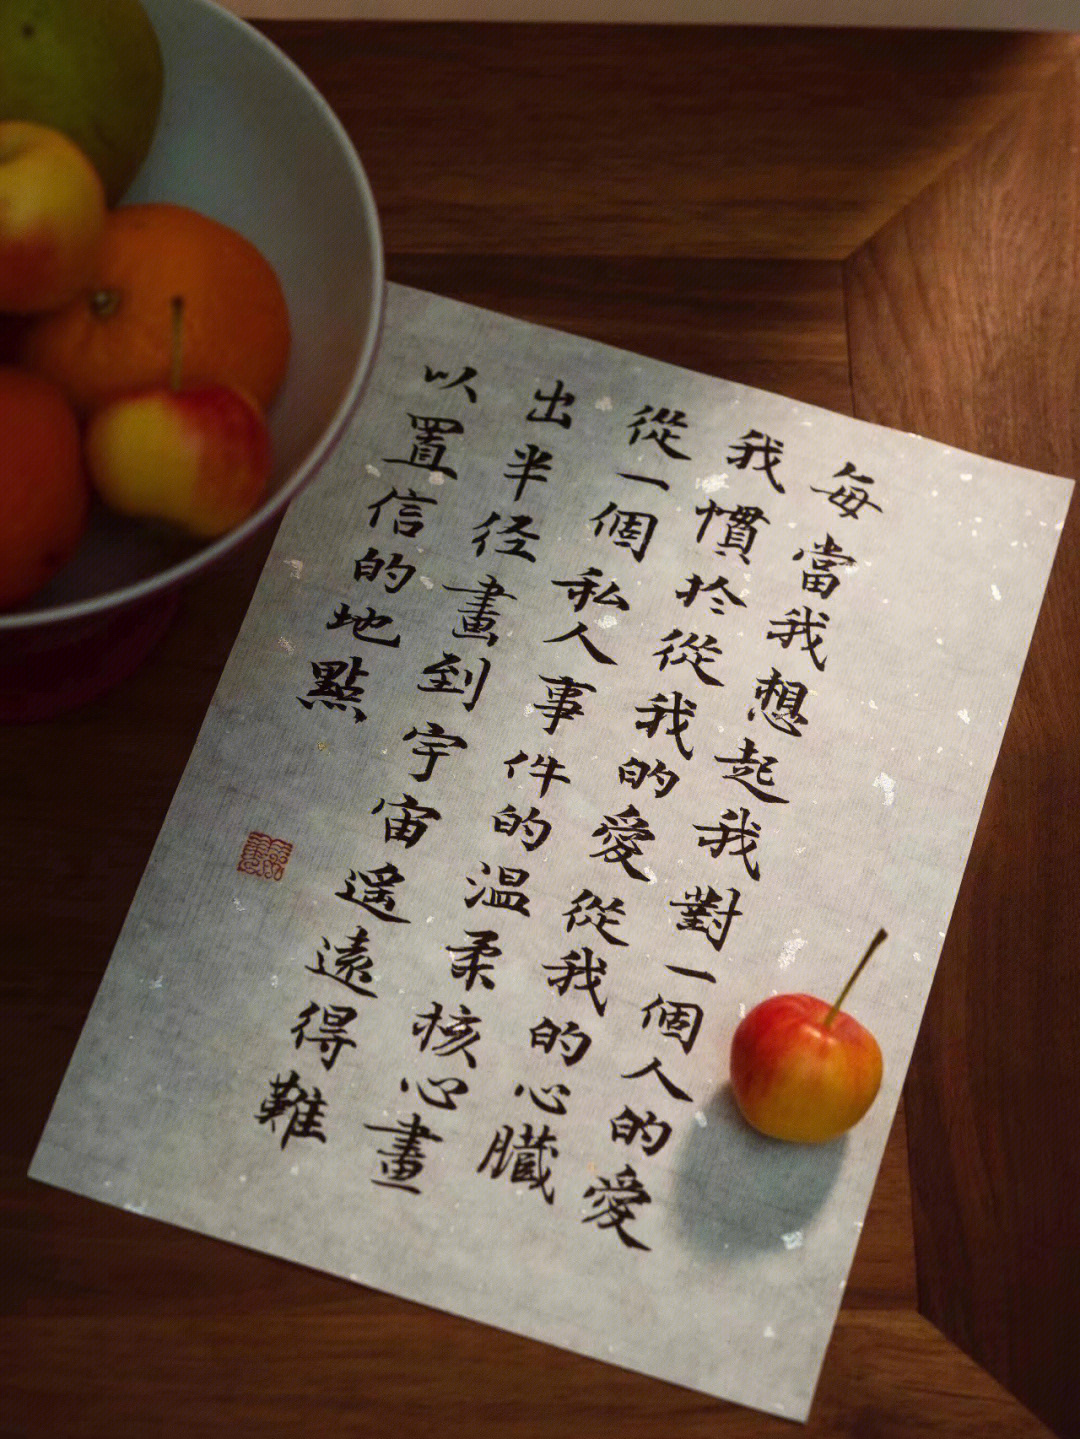 每當我想起我對一個人的愛
我慣於從我的愛從我的心臟
從一個私人事件的温柔核心畫
出半径畫到宇宙遥遠得難
以置信的地點